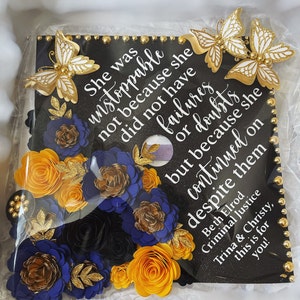 She was
unstoppable
not because she
did not have
failures
or doubts
but because she
continued on
despite them
Beth Elrod
Criminal Justice
Trina & Christy,
this is for
you!